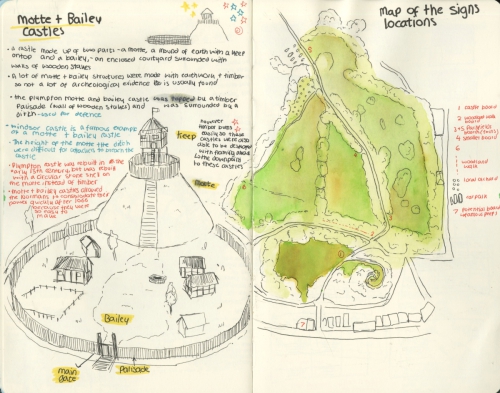 Motte + Bailey
Castles
• A castle made up of two parts - a motte, a mound of earth with a keep
on top and a bailey, - an enclosed courtyard surrounded with
walls of wooden stakes
• A lot of motte + bailey structures were made with earthwork + timber
so not a lot of archeological evidence is usually found
• the plumpton motte and bailey castle was topped by a timber
Palisade (wall of wooden stakes) and was surrounded by a
ditch - used for defence
• Windsor castle is a famous example
of a motte + bailey castle
The height of the motte + the ditch
made it difficult for attackers to
castle
• Plumpton castle was rebuilt in the
early 13th century, but was rebuilt
with a circular stone shell on
the motte instead of timber
• motte + bailey castles allowed
the Normans to consolidate their
power quickly after 1066
because they were
so easy to
make
Keep
however
timber burns
easily so these
castles were also
able to be destroyed
with flaming
to these castles
Motte
Bailey
main
Gate
Palisade
Map of the signs
locations
1 castle board
2 board
4
woodland
walk
carpark
7 potential board